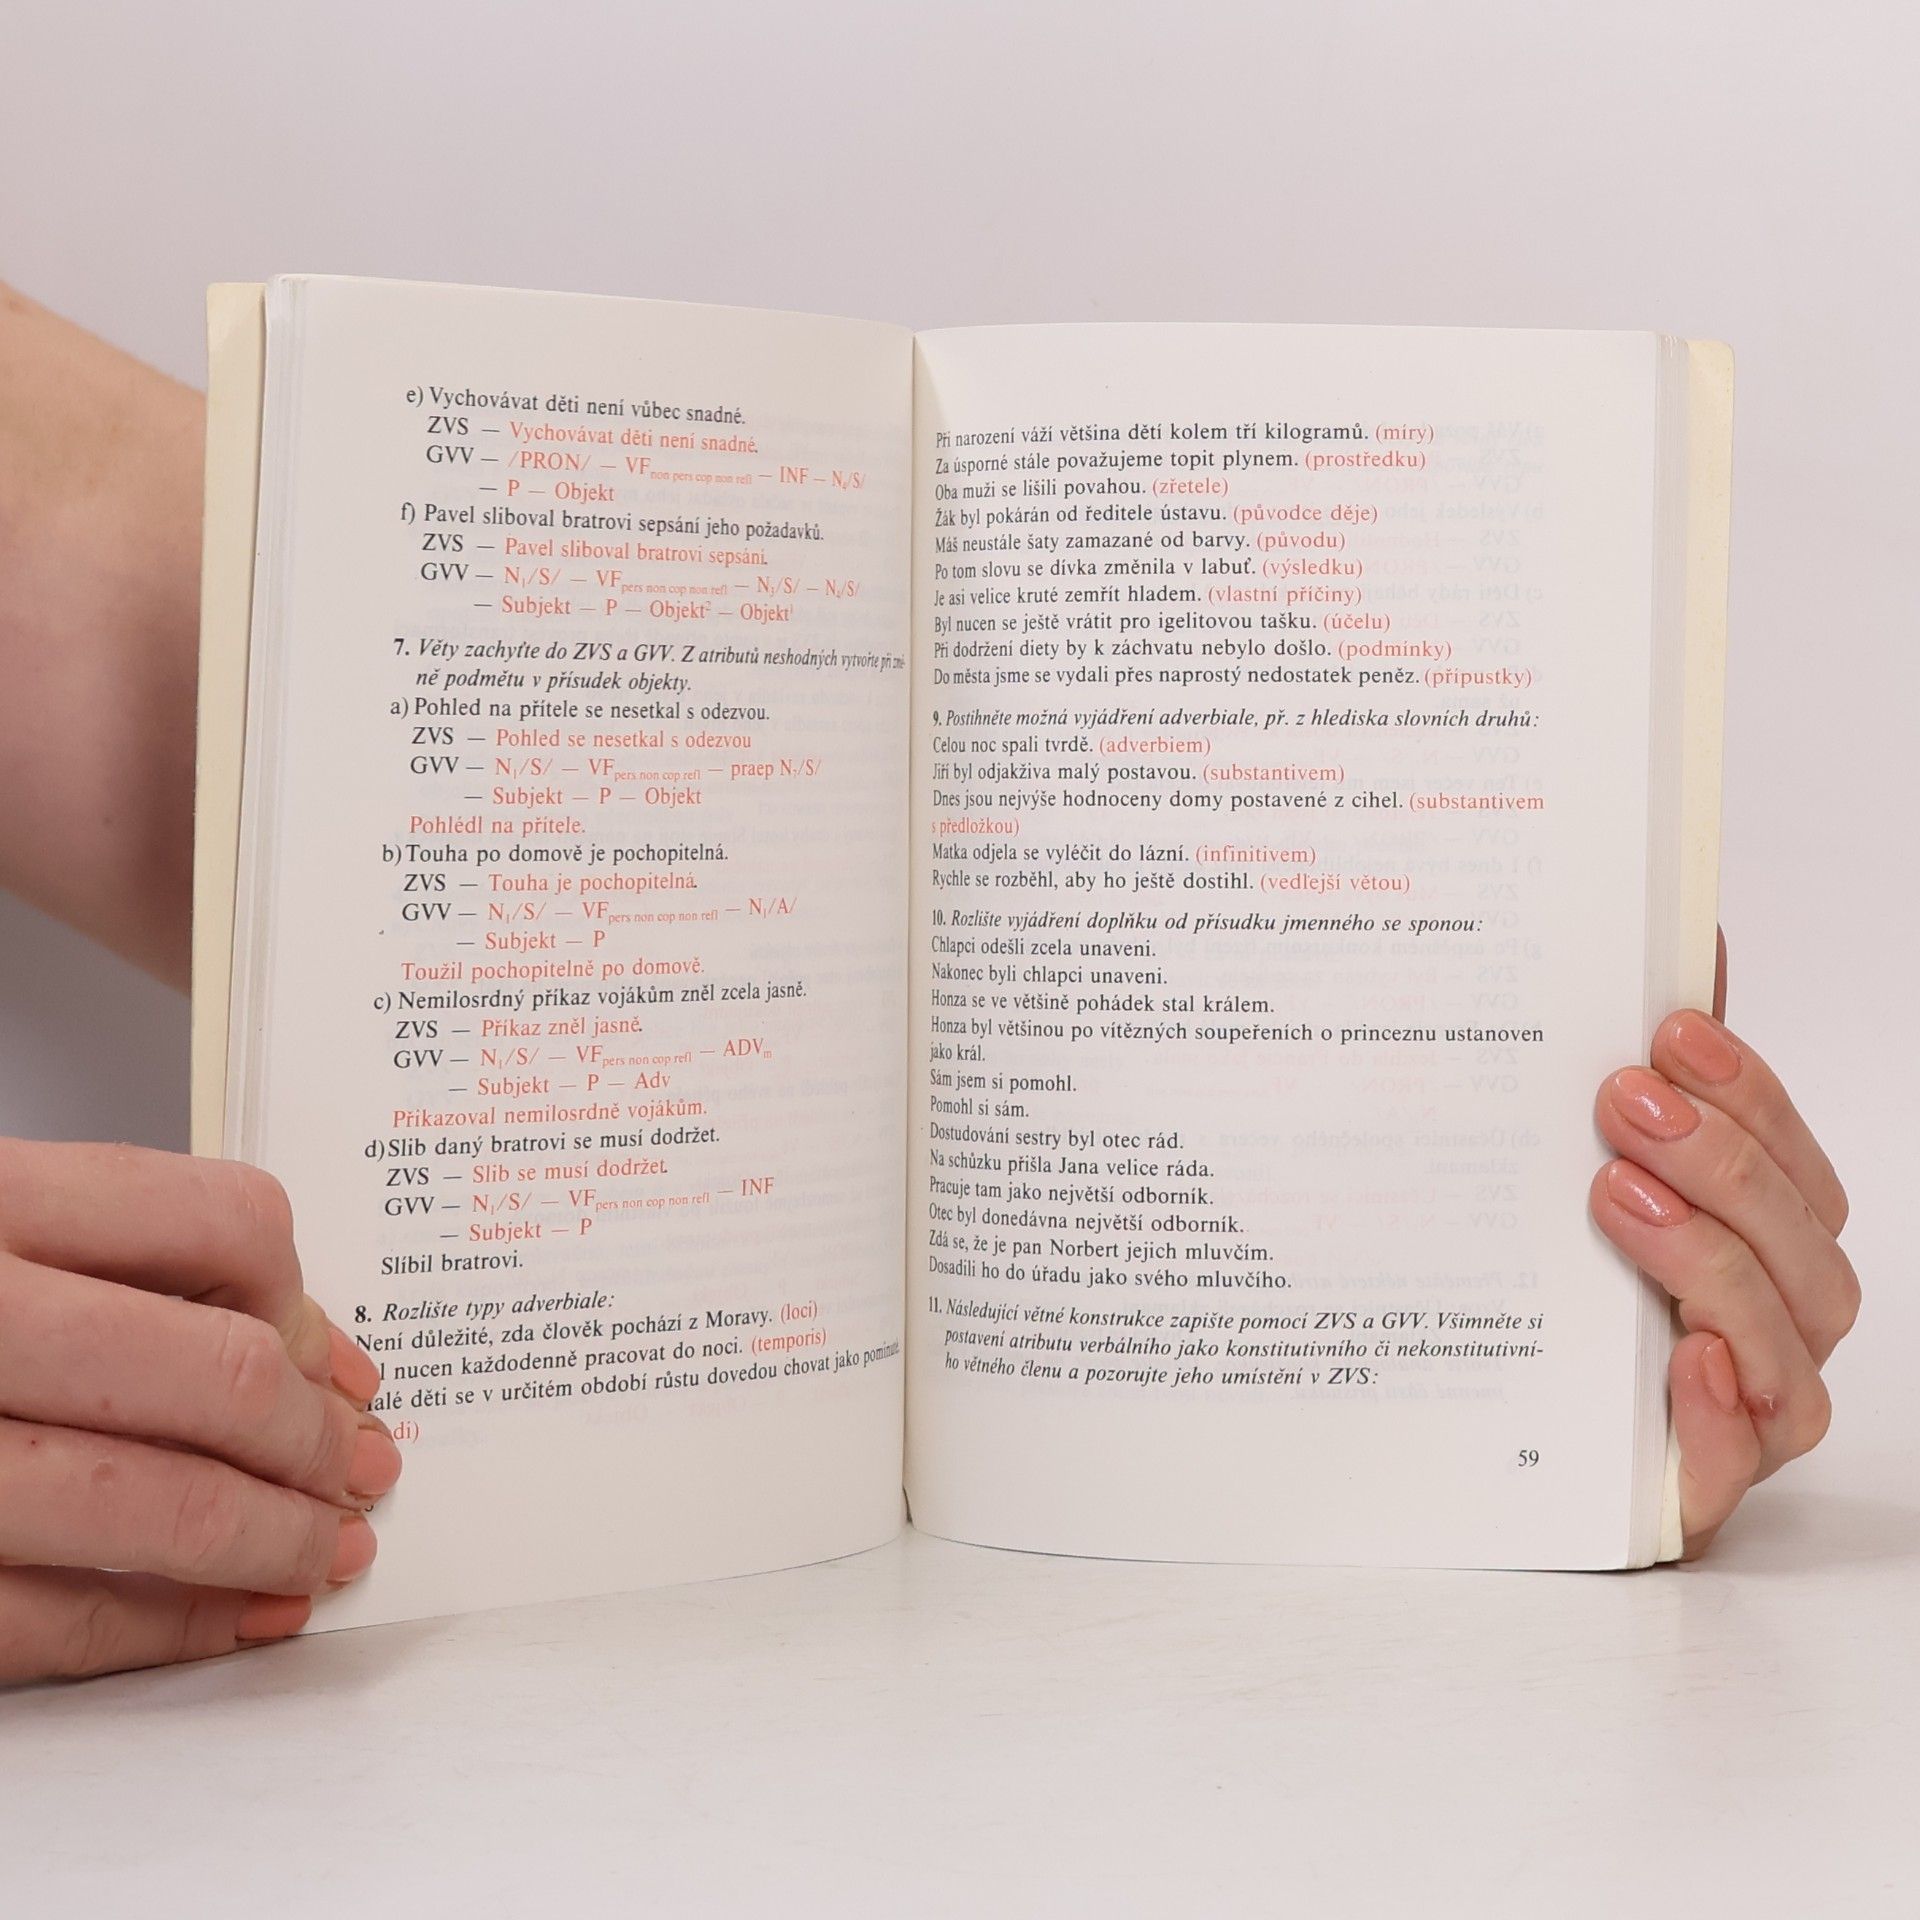 e) Vychovávat děti není vůbec snadné.
ZVS — Vychovávat děti není snadné.
GVV — /PRON/ — VF non pers cop non refl — INF — N₄/S/
— P — Objekt
f) Pavel sliboval bratrovi sepsání jeho požadavků.
ZVS — Pavel sliboval bratrovi sepsání.
GVV — N₁/S/ — VF pers non cop non refl — N₃/S/ — N₄/S/
— Subjekt — P — Objekt² — Objekt¹
7. Věty zachyťte do ZVS a GVV. Z atributů neshodných vytvořte při změ-
ně podmětu v přísudek objekty.
a) Pohled na přítele se nesetkal s odezvou.
ZVS — Pohled se nesetkal s odezvou
GVV — N₁/S/ — VF pers non cop refl — praep N₇/S/
— Subjekt — P — Objekt
Pohlédl na přítele.
b) Touha po domově je pochopitelná.
ZVS — Touha je pochopitelná.
GVV — N₁/S/ — VF pers non cop non refl — N₁/A/
— Subjekt — P
Toužil pochopitelně po domově.
c) Nemilosrdný příkaz vojákům zněl zcela jasně.
ZVS — Příkaz zněl jasně.
GVV — N₁/S/ — VF pers non cop refl — ADVₘ
— Subjekt — P — Adv
Přikazoval nemilosrdně vojákům.
d) Slib daný bratrovi se musí dodržet.
ZVS — Slib se musí dodržet.
GVV — N₁/S/ — VF pers non cop non refl — INF
— Subjekt — P
Slíbil bratrovi.
8. Rozlište typy adverbiale:
Není důležité, zda člověk pochází z Moravy. (loci)
l nucen každodenně pracovat do noci. (temporis)
alé děti se v určitém období růstu dovedou chovat jako pominuté.
di)
Při narození váží většina dětí kolem tří kilogramů. (míry)
Za úsporné stále považujeme topit plynem. (prostředku)
Oba muži se lišili povahou. (zřetele)
Žák byl pokárán od ředitele ústavu. (původce děje)
Máš neustále šaty zamazané od barvy. (původu)
Po tom slovu se dívka změnila v labuť. (výsledku)
Je asi velice kruté zemřít hladem. (vlastní příčiny)
Byl nucen se ještě vrátit pro igelitovou tašku. (účelu)
Při dodržení diety by k záchvatu nebylo došlo. (podmínky)
Do města jsme se vydali přes naprostý nedostatek peněz. (přípustky)
9. Postihněte možná vyjádření adverbiale, př. z hlediska slovních druhů:
Celou noc spali tvrdě. (adverbiem)
Jiří byl odjakživa malý postavou. (substantivem)
Dnes jsou nejvýše hodnoceny domy postavené z cihel. (substantivem
s předložkou)
Matka odjela se vyléčit do lázní. (infinitivem)
Rychle se rozběhl, aby ho ještě dostihl. (vedlejší větou)
10. Rozlište vyjádření doplňku od přísudku jmenného se sponou:
Chlapci odešli zcela unaveni.
Nakonec byli chlapci unaveni.
Honza se ve většině pohádek stal králem.
Honza byl většinou po vítězných soupeřeních o princeznu ustanoven
jako král.
Sám jsem si pomohl.
Pomohl si sám.
Dostudování sestry byl otec rád.
Na schůzku přišla Jana velice ráda.
Pracuje tam jako největší odborník.
Otec byl donedávna největší odborník.
Zdá se, že je pan Norbert jejich mluvčím.
Dosadili ho do úřadu jako svého mluvčího.
11. Následující větné konstrukce zapište pomocí ZVS a GVV. Všimněte si
postavení atributu verbálního jako konstitutivního či nekonstitutivní-
ho větného členu a pozorujte jeho umístění v ZVS:
59